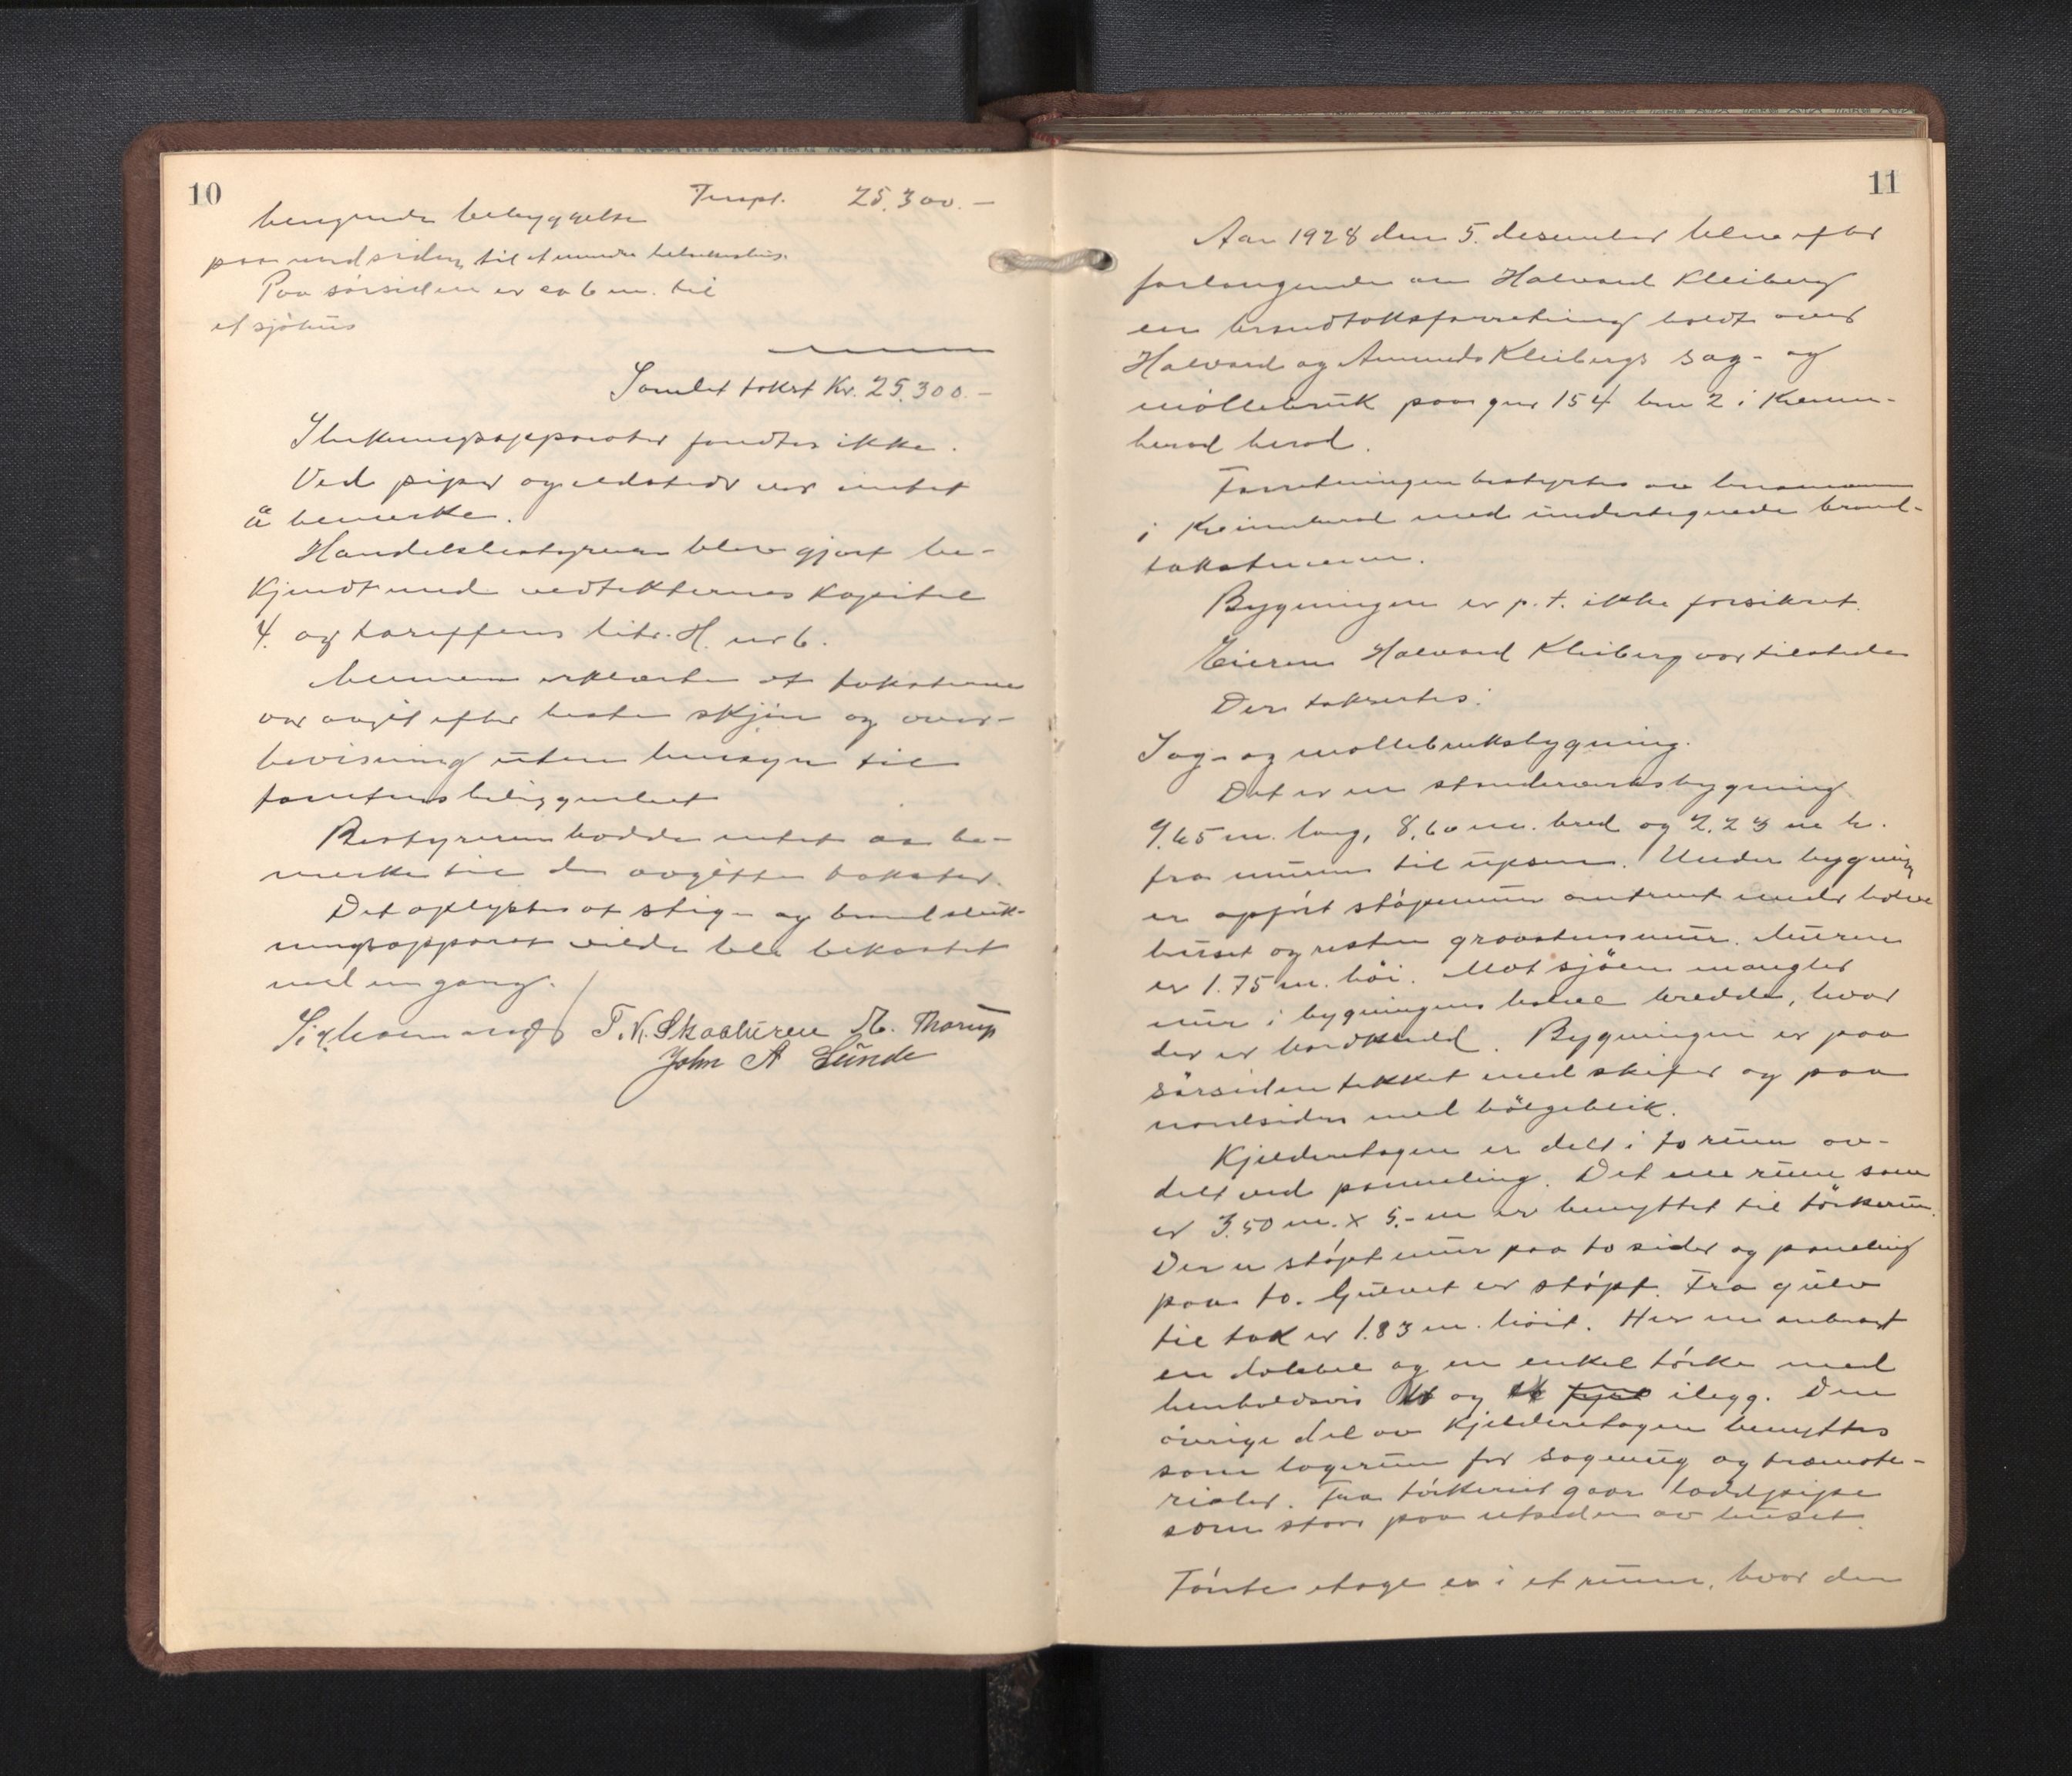 10
Transp. 25.300.-
bebyggelse
paa nordsiden til et mindre
Paa sörsiden er ca 6 m. til
et sjöhus
Samlet takst Kr. 25.300.-
Slukningsapparater fandtes ikke.
Ved piper og ildsteder var intet
å bemerke.
Handelsbestyreren blev gjort be-
kjendt med vedtekternes kapitel
4. og tariffens litr. H. nr 6.
Mennene erklærte at taksterne
var avgit efter beste skjön og over-
bevisning uten hensyn til
tomtens beliggenhet
Bestyreren hadde intet aa be-
merke til de avgitte takster.
Det oplystes at stige og brandsluk-
ningsapparat vilde bli bekostet
med en gang.
T. N. Skaaluren M. Thorup
John A Sunde
11
Aar 1928 den 5. desember blev efter
forlangende av Halvard Kleiberg
en brandtakstforretning holdt over
Halvard og Amunds Kleibergs sag- og
möllebruk paa gnr 154 bnr 2 i Kvinn-
herad herad.
Forretningen bestyrtes av lensmannen
i Kvinnherad med undertegnede brand-
takstmenn.
Bygningen er p.t. ikke forsikret.
Eieren Halvard Kleiberg var tilstede
Der takseertes:
Sag- og möllebruksbygning.
Det er en standerverksbygning
9.65 m. lang, 8,60 m. bred og 2,23 m h.
fra muren til upsen. Under bygning
er opfört stöpemur omtrent under halve
huset og resten graastensmur. Muren
er 1.75 m. höi. Mot sjöen mangler
mur i bygningens halve bredde, hvor
der er bordkledd. Bygningen er paa
sörsiden tekket med skifer og paa
nordsiden med bölgeblik.
Kjelderetagen er delt i to rum av-
delt ved panneling. Det ene rum som
er 3.50 m. x 5.- m er benyttet til törkerum.
Der er stöpt mur paa to sider og paneling
paa to. Gulvet er stöpt. Fra gulv
til tak er 1.83 m. höit. Her er anbragt
en dobbel og en enkel törke med
henholdsvis og ilegg. Den
övrige del av kjelderetagen benyttes
som lagerum for sagmug og træmate-
rialer. Fra törkerum gaar
som staar paa utsiden av huset.
Förste etage er i et rum, hvor den